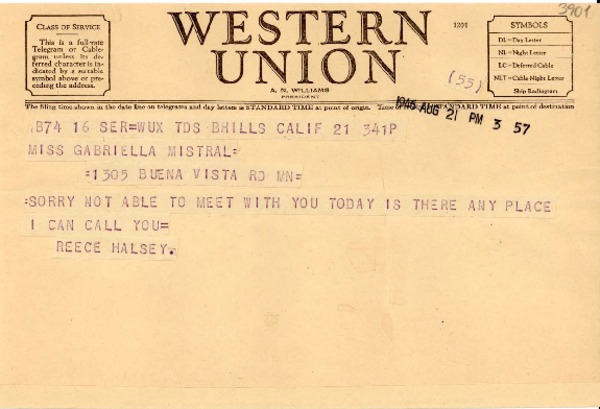 3901
CLASS OF SERVICE
This is a full-rate
Telegram or Cable-
gram unless its de-
ferred character is in-
dicated by a suitable
symbol above or pre-
ceding the address.
WESTERN
UNION
A. N. WILLIAMS
PRESIDENT
1201
(55)
SYMBOLS
DL=Day Letter
NL=Night Letter
LC=Deferred Cable
NLT=Cable Night Letter
Ship Radiogram
The filing time shown in the date line on telegrams and day letters is STANDARD TIME at point of origin. Time of STANDARD TIME at point of destination
1946 AUG 21 PM 3 57
B74 16 SER=WUX TDS BHILLS CALIF 21 341P
MISS GABRIELLA MISTRAL=
=1305 BUENA VISTA RD MN=
=SORRY NOT ABLE TO MEET WITH YOU TODAY IS THERE ANY PLACE
I CAN CALL YOU=
REECE HALSEY.